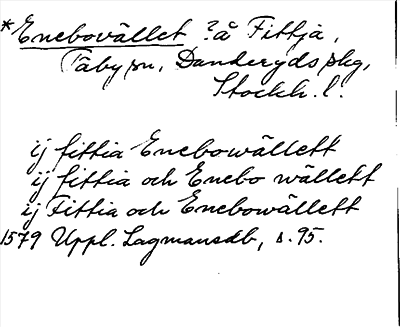 *Enebovället ? å Fittja,
Täby sn, Danderyds skg,
Stockh. l.
ij fittia Enebowällett
ij fittia och Enebo wällett
ij Fittia och Enebowällett
1579 Uppl. Lagmansdb, s. 95.